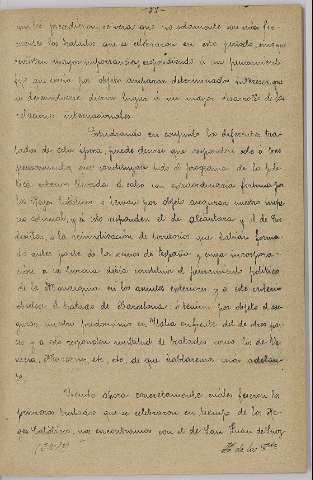 - 33 -
que le precedieron se vera que no solamente son más fre-
cuentes los tratados que se celebraron en este periodo sino que
revisten mayor importancia, obedeciendo a un pensamiento
fijo que tenia por objeto amparar determinados intereses, que
al desenvolverse dieron lugar á un mayor desarrollo de las
relaciones internacionales.
Considerando en conjunto los diferentes tra-
tados de esta época, puede decirse que responden solo a tres
pensamientos, que constituyen todo el programa de la poli-
tica exterior llevada á cabo con extraordinaria fortuna por
los Reyes Católicos: ó tenian por objeto asegurar nuestro impe-
rio colonial, y á esto responden el de Alcántara y el de Tor-
desillas, ó la reivindicación de territorios que habian forma-
do antes parte de los reinos de España y cuya incorpora-
ción á la Corona debia constituir el pensamiento politico
de la Monarquia en los asuntos exteriores y a este criterio
obedece el tratado de Barcelona; ó tenian por objeto el ase-
gurar nuestro predominio en Italia enfrente del de otros pai-
ses y a esto responden multitud de tratados como los de Ve-
necia, Marcoussis, etc, etc, de que hablaremos mas adelan-
te.
Viendo ahora concretamente cuáles fueron los
primeros tratados que se celebraron en tiempo de los Re-
yes Católicos, nos encontramos con el de San Juan de Luz